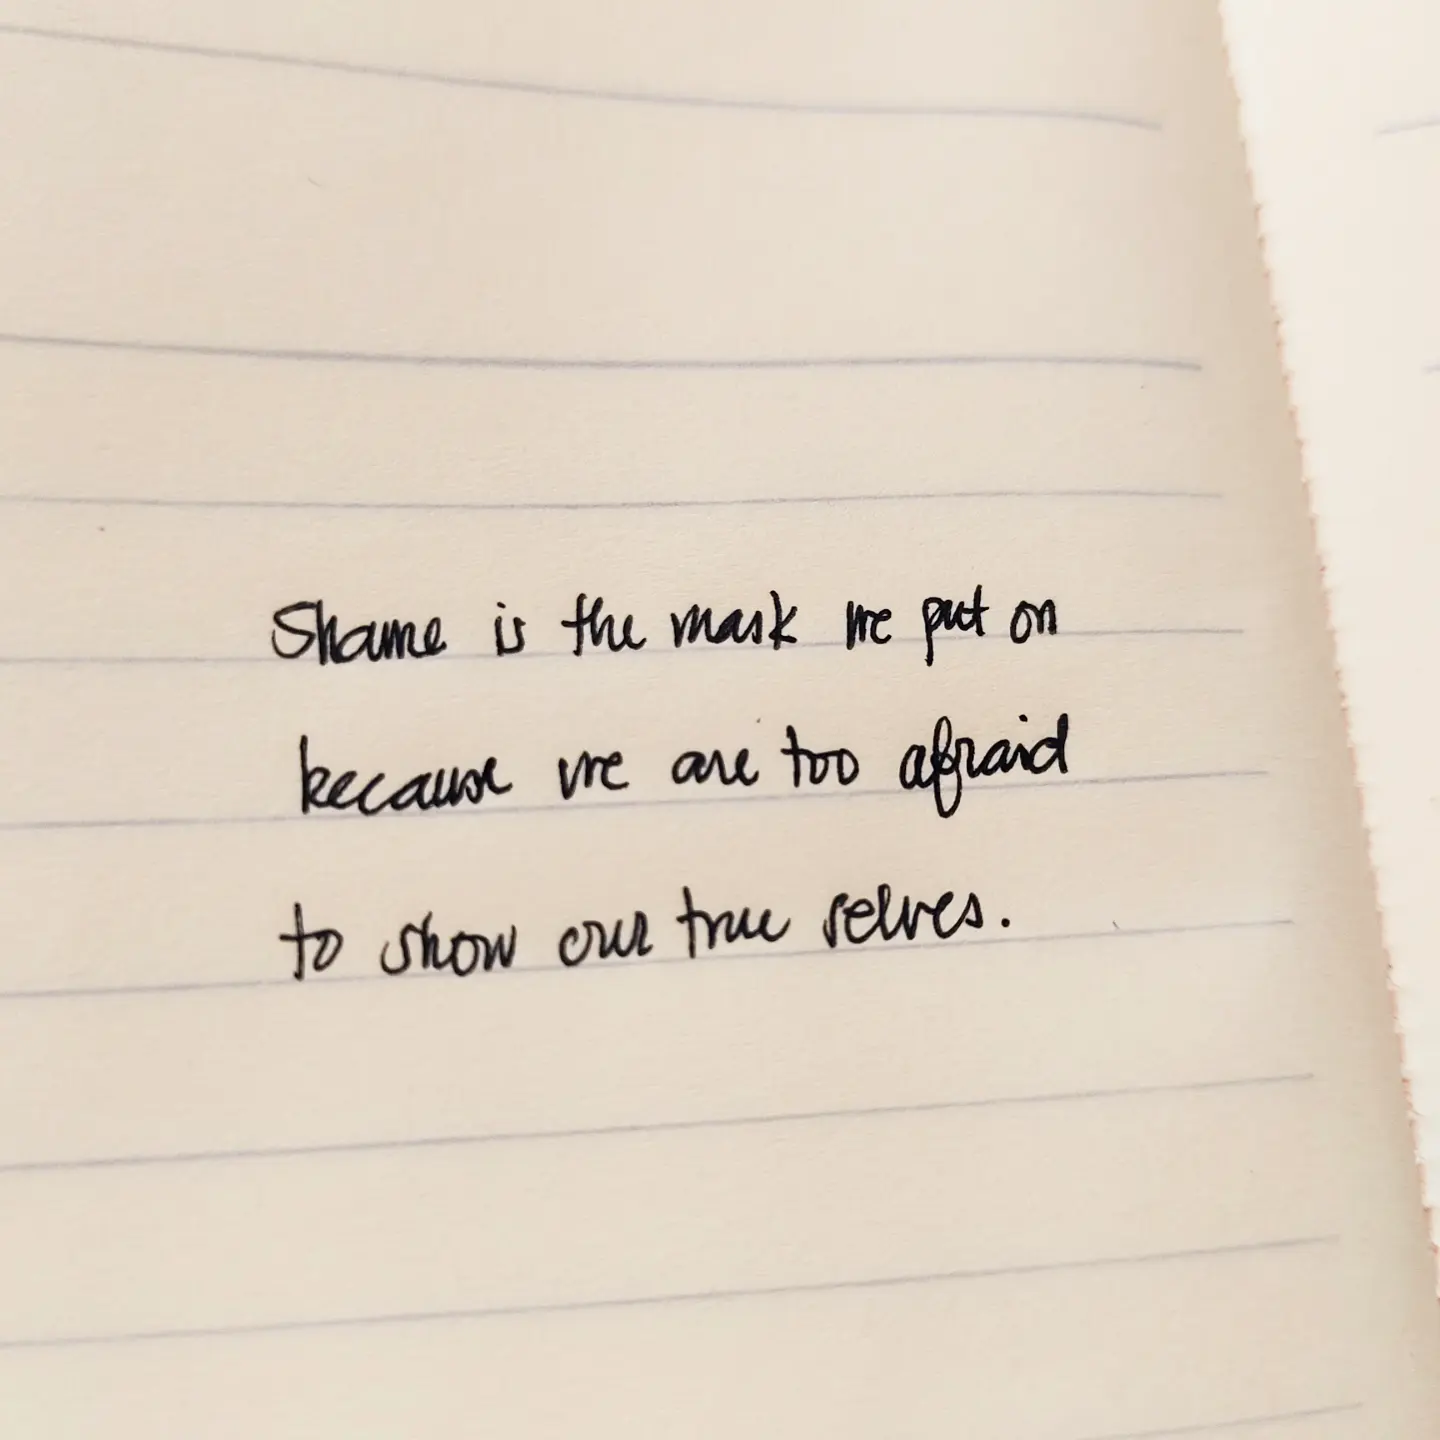 Shame is the mask we put on
because we are too afraid
to show our true selves.